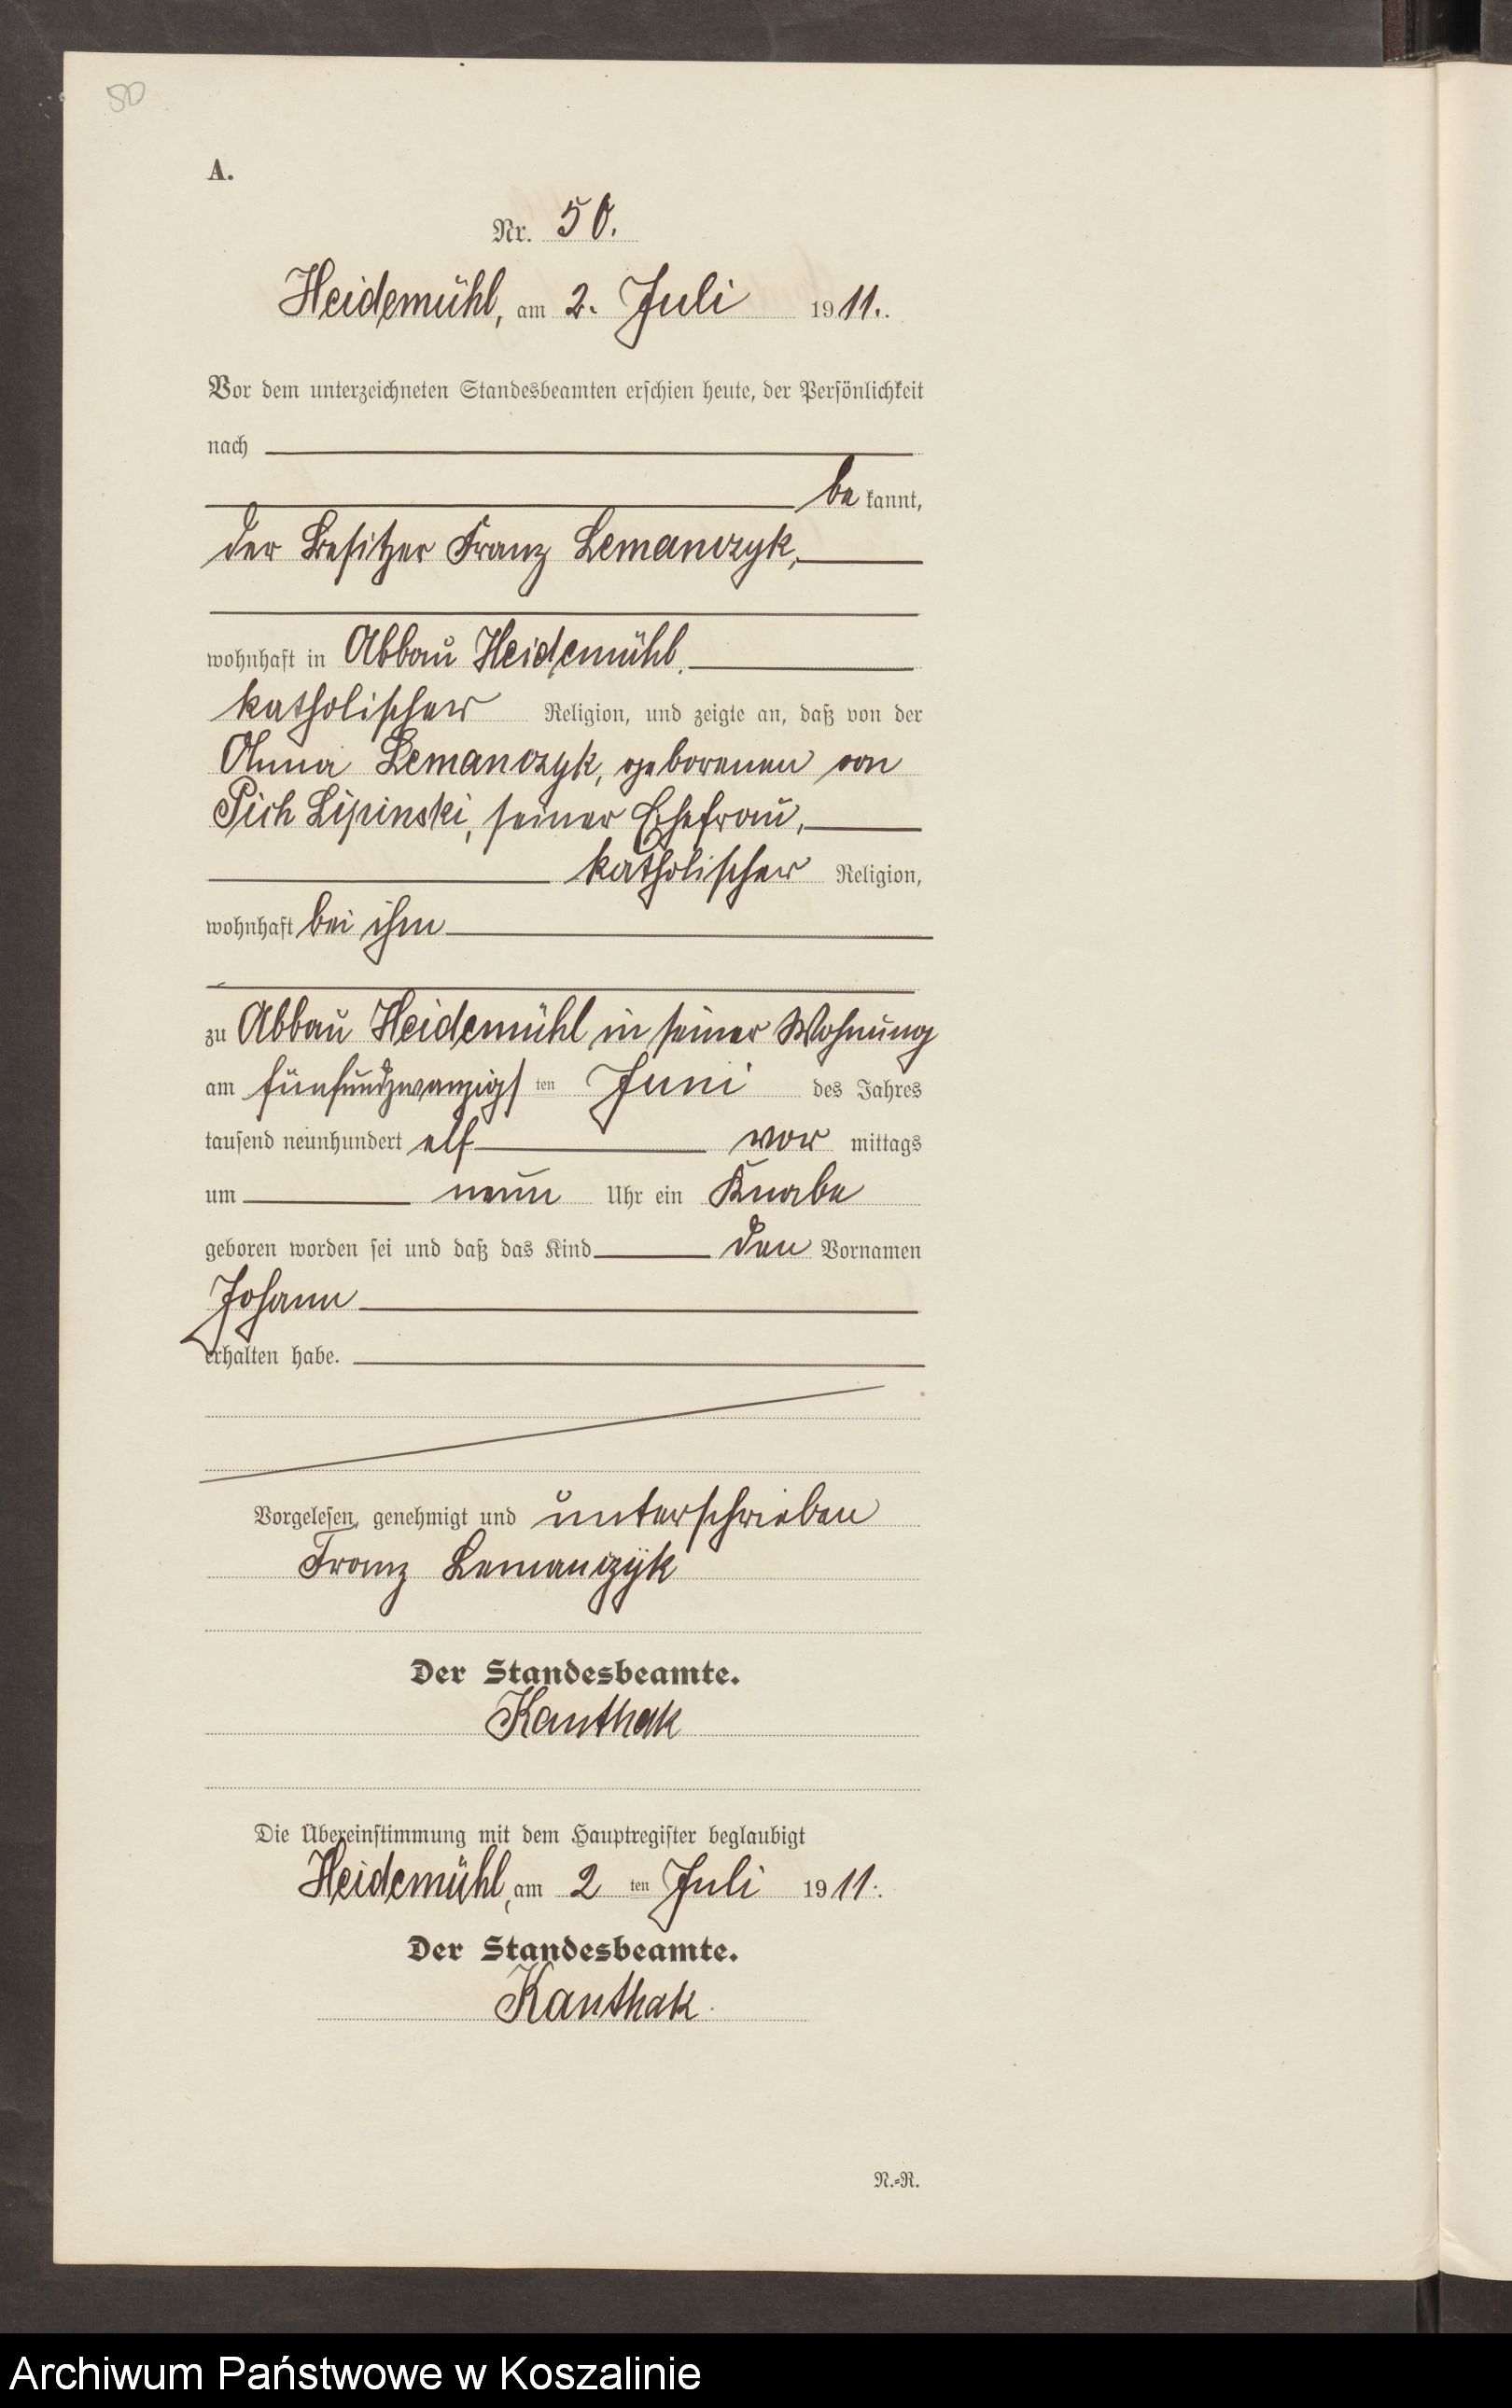 50
A.
Nr. 50.
Heidemühl, am 2. Juli 1911.
Vor dem unterzeichneten Standesbeamten erschien heute, der Persönlichkeit
nach
be kannt,
der Besitzer Franz Lemanczyk,
wohnhaft in Abbau Heidemühl,
katholischer Religion, und zeigte an, daß von der
Anna Lemanczyk, geborenen von
Pich Lipinski, seiner Ehefrau,
katholischer Religion,
wohnhaft bei ihm
zu Abbau Heidemühl in seiner Wohnung
am fünfundzwanzigsten Juni des Jahres
tausend neunhundert elf vor mittags
um neun Uhr ein Knabe
geboren worden sei und daß das Kind den Vornamen
Johann
erhalten habe.
Vorgelesen, genehmigt und unterschrieben
Franz Lemanczyk
Der Standesbeamte.
Kanthak
Die Übereinstimmung mit dem Hauptregister beglaubigt
Heidemühl, am 2 ten Juli 1911.
Der Standesbeamte.
Kanthak.
N.-R.
Archiwum Państwowe w Koszalinie